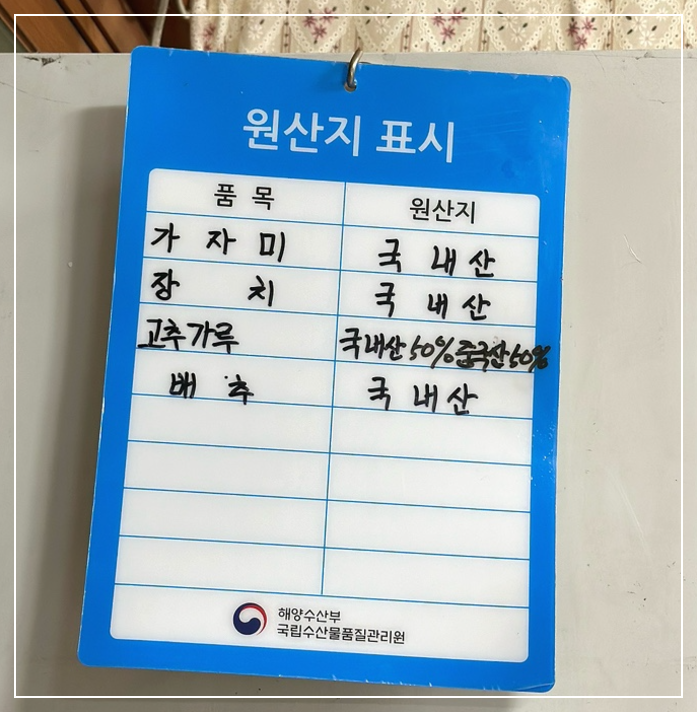 원산지 표시
품 목 원산지
가 자 미 국 내 산
장 치 국 내 산
고추가루 국내산 50% 중국산 50%
배 추 국 내 산
해양수산부
국립수산물품질관리원